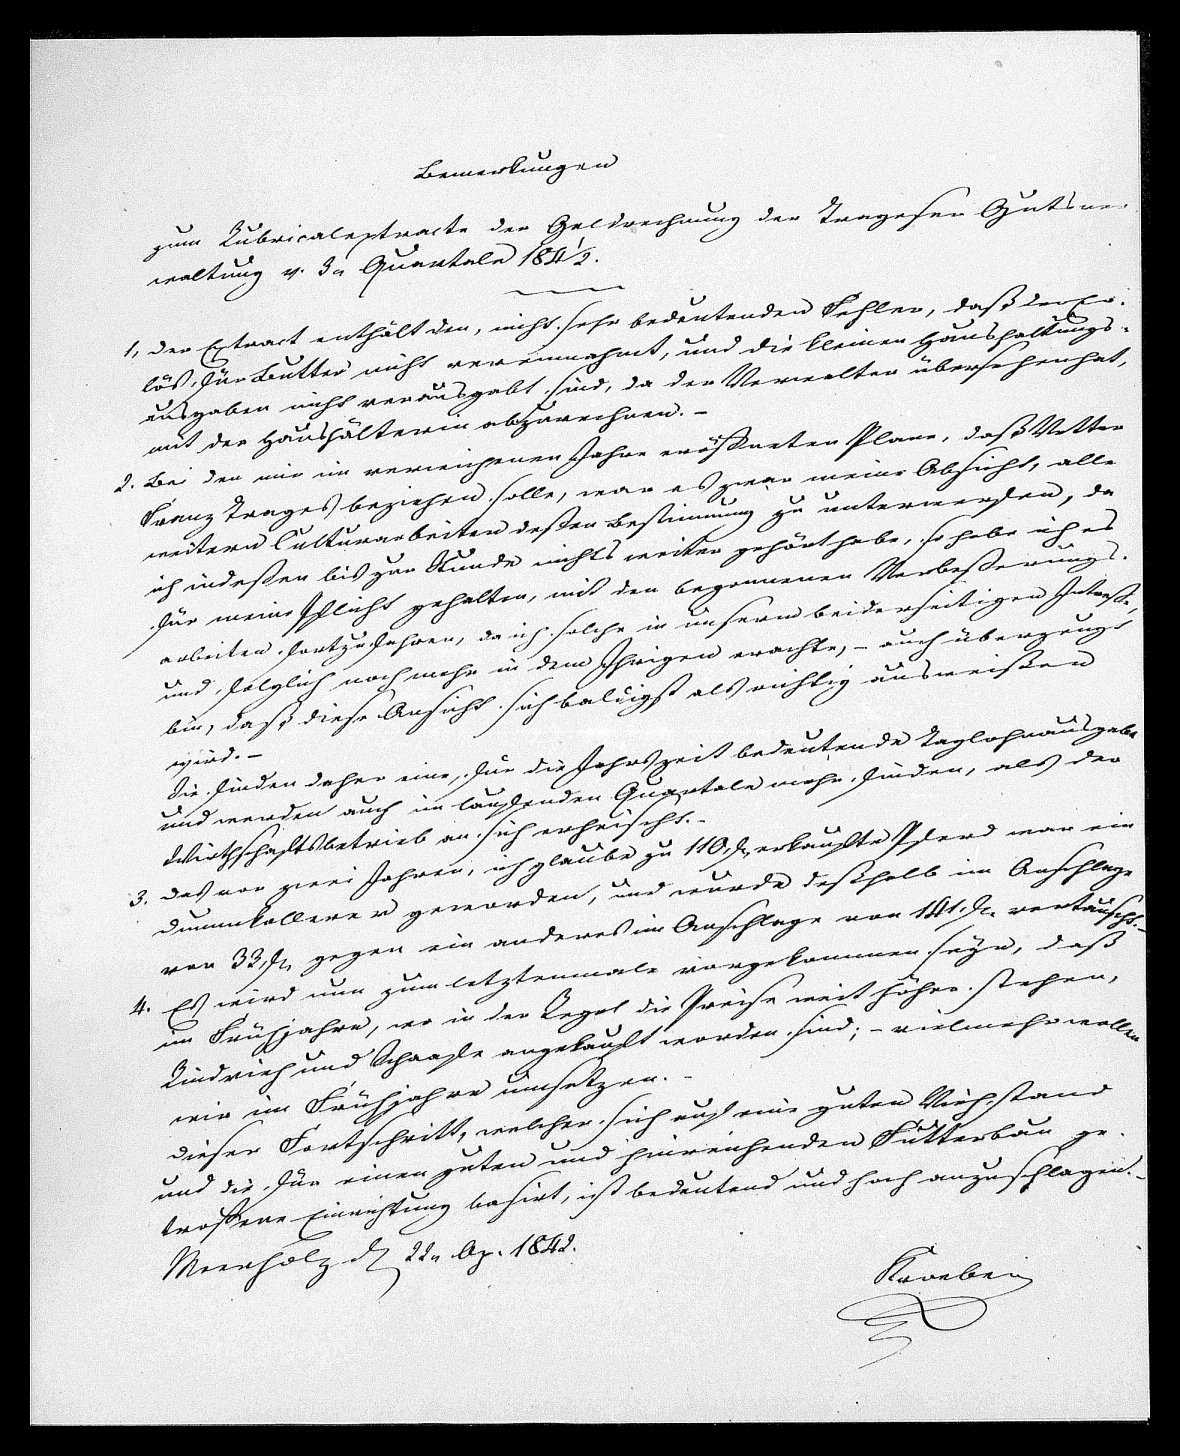 Bemerkungen
zum Rubricalextracte der Geldrechnung der Trageser Gutsver
waltung v. 3n Quartale 184½.
1, Der Extract enthält den, nicht sehr bedeutenden Fehler, daß der Er-
lös für Butter nicht vereinnahmt, und die kleinen Haushaltungs-
ausgaben nicht verausgabt sind, da der Verwalter übersehen hat,
mit der Haushälterin abzurechnen. -
2. Bei dem mir im verwichenen Jahre eröffneten Plane, daß Vetter
Franz Trages beziehen solle, war es zwar meine Absicht, alle
weitern Culturarbeiten deßen Bestimmung zu unterwerfen, da
ich indeßen bis zur Stunde nichts weiter gehört habe, so habe ich es
für meine Pflicht gehalten, mit den begonnenen Verbeßerungs-
arbeiten fortzufahren, da ich solche in unserm beiderseitigen Intreße,
und folglich noch mehr in dem Ihrigen erachte, - auch überzeugt
bin, daß diese Ansicht sich baldigst als richtig ausweißen
wird. -
Sie finden daher eine, für die Jahrszeit bedeutende Taglohnausgabe
und werden auch im laufenden Quartale mehr finden, als der
Wirthschaftsbetrieb an sich erheischt. -
3. das vor zwei Jahren, ich glaube zu 110 fl, erkaufte Pferd war ein
dummkollerer geworden, und wurde deßhalb im Anschlage
von 33 fl, gegen ein anderes im Anschlage von 141 fl. vertauscht. -
4. Es wird nun zum letztenmale vorgekommen seyn, daß
im Frühjahre, wo in der Regel die Preise weit höher stehen,
Rindvieh und Schaafe angekauft worden sind; - vielmehr wollen
wir im Frühjahre umsetzen. -
dieser Fortschritt, welcher sich auf eine guten Viehstand
und die für einen guten und hinreichenden Futterbau ge-
troffene Einrichtung basirt, ist bedeutend und hoch anzuschlagen. -
Meerholz d. 22n Ap. 1842.
Kroeber